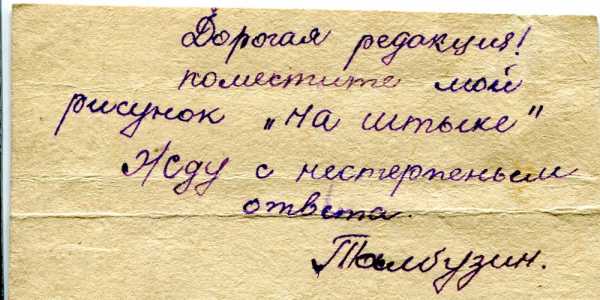 Дорогая редакция!
поместите мой
рисунок „на штыке"
Жду с нестерпеньем
ответа.
Талбузин.